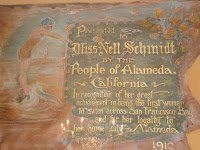 Presented to
Miss Nell Schmidt
BY THE
People of Alameda,
California
In recognition of her great
achievement in being the first woman
to swim across San Francisco Bay
and for her loyalty to
her home City - Alameda
1912